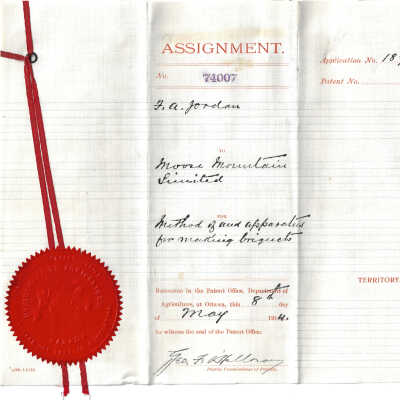 ASSIGNMENT.
No. 74007
F. A. Jordan
TO
Moose Mountain
Limited
FOR
Method of and apparatus
for making briquets
Recorded in the Patent Office, Department of
Agriculture, at Ottawa, this 8th day
of May 1914.
As witness the seal of the Patent Office.
Geo. F. O'Halloran
Application No. 18
Patent No.
TERRITORY